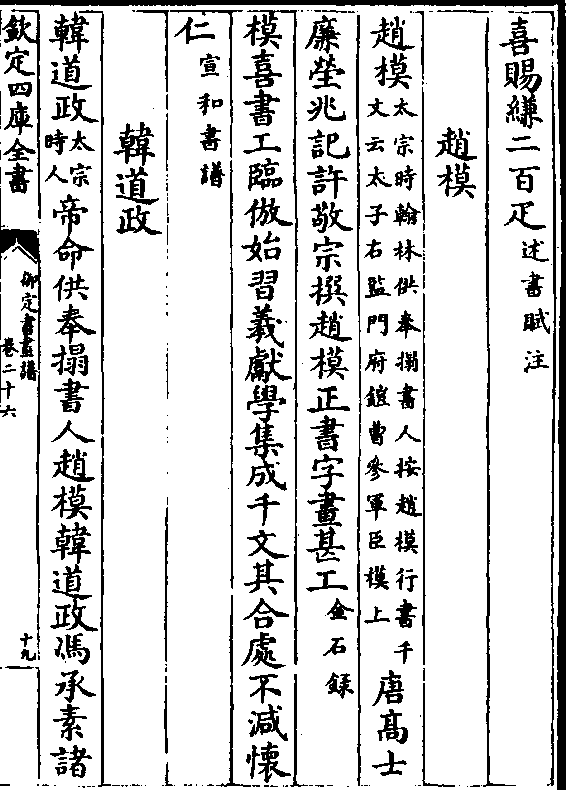 喜賜縑二百疋述書賦注
趙模
趙模太宗時翰林供奉搨書人按趙模行書千
文云太子右監門府鎧曹參軍臣模上唐高士
廉塋兆記許敬宗撰趙模正書字畫甚工金石録
模喜書工臨倣始習羲獻學集成千文其合處不減懷
仁宣和書譜
韓道政
韓道政太宗
時人帝命供奉搨書人趙模韓道政馮承素諸
欽定四庫全書
御定書畫譜
卷二十六
十九